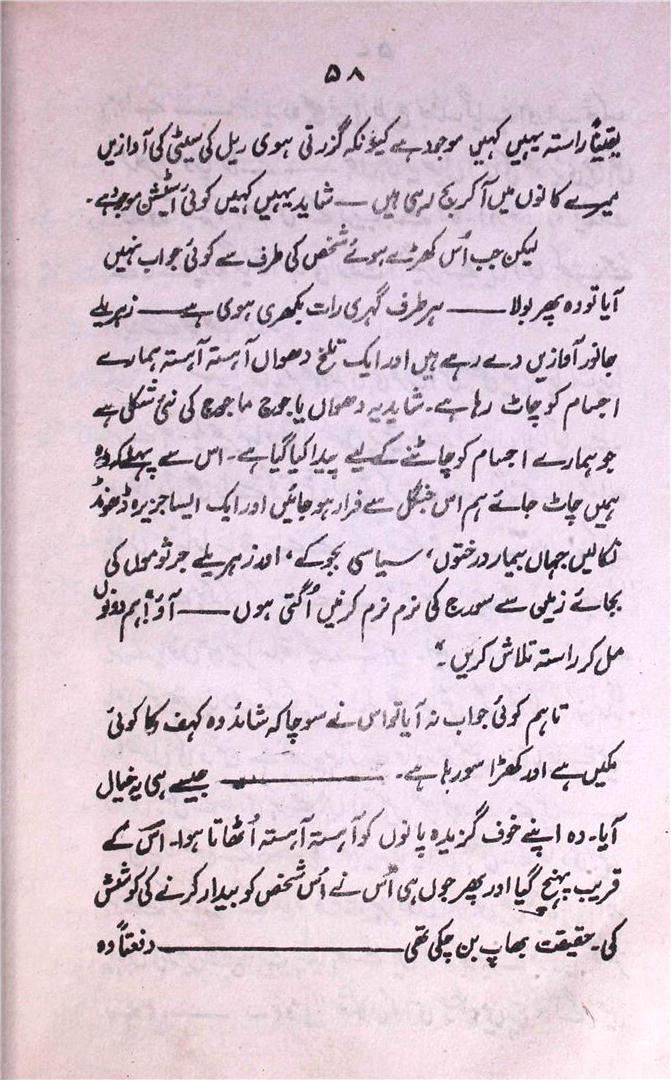 ۵۸
یقیناً راستہ یہیں کہیں موجود ہے کیونکہ گزرتی ہوی ریل کی سیٹی کی آوازیں
میرے کانوں میں آکر بج رہی ہیں — شاید یہیں کہیں کوئی اسٹیشن موجود ہے۔
لیکن جب اُس کھڑے ہوئے شخص کی طرف سے کوئی جواب نہیں
آیا تو وہ پھر بولا —— ہر طرف گہری رات بکھری ہوی ہے —— زہریلے
جانور آوازیں دے رہے ہیں اور ایک تلخ دھواں آہستہ آہستہ ہمارے
اجسام کو چاٹ رہا ہے۔ شاید یہ دھواں یاجوج ماجوج کی نئی شکل ہے
جو ہمارے اجسام کو چاٹنے کے لیے پیدا کیا گیا ہے۔ اس سے پہلے کہ وہ
ہمیں چاٹ جائے ہم اس جنگل سے فرار ہو جائیں اور ایک ایسا جزیرہ ڈھونڈ
نکالیں جہاں بیمار درختوں، سیاسی بجوکے، اور زہریلے جرثوموں کی
بجائے زمین سے سورج کی نرم نرم کرنیں اُگتی ہوں —— آؤ! ہم دونوں
مل کر راستہ تلاش کریں۔"
تاہم کوئی جواب نہ آیا تو اس نے سوچا کہ شائد وہ کہف کا کوئی
مکیں ہے اور کھڑا سو رہا ہے۔ ———— جیسے ہی یہ خیال
آیا۔ وہ اپنے خوف گزیدہ پانوں کو آہستہ آہستہ اُٹھاتا ہوا۔ اس کے
قریب پہنچ گیا اور پھر جوں ہی اُس نے اُس شخص کو بیدار کرنے کی کوشش
کی۔ حقیقت بھاپ بن چکی تھی —————— دفعتاً وہ